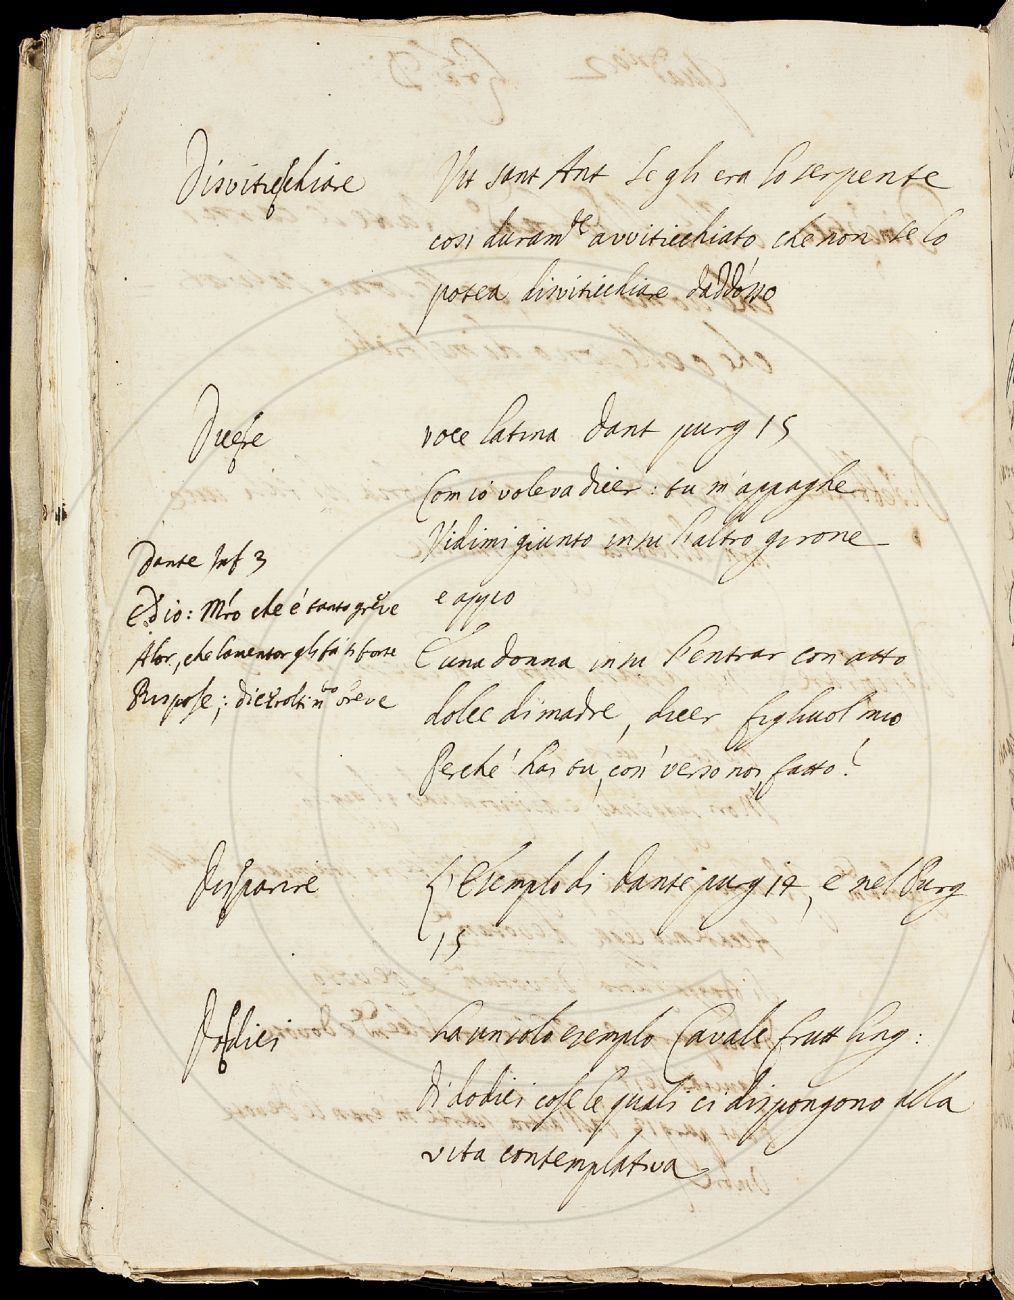 Disviticchiare
Vit sant Ant se gli era lo serpente
così duram.te avviticchiato, che non se lo
potea disviticchiare daddosso
Dicere
voce latina Dant purg 15
Com io voleva dicer: tu m'appaghe
Vidimi giunto in su l'altro girone
e appo
E una donna in su l'entrar con atto
dolce di madre, dicer figliuol mio
Perché hai tu così verso noi fatto?
Dante Inf 3
Ed io: Mro che è tanto greve
A lor, che lamentar gli fà sì forte
Rispose; dicerolti molto breve
Disparire
Esemplo di Dante purg 14, e nel Purg
15
Dodici
ha un solo esemplo Cavalc frutt ling:
di dodici cose le quali ci dispongono alla
vita contemplativa